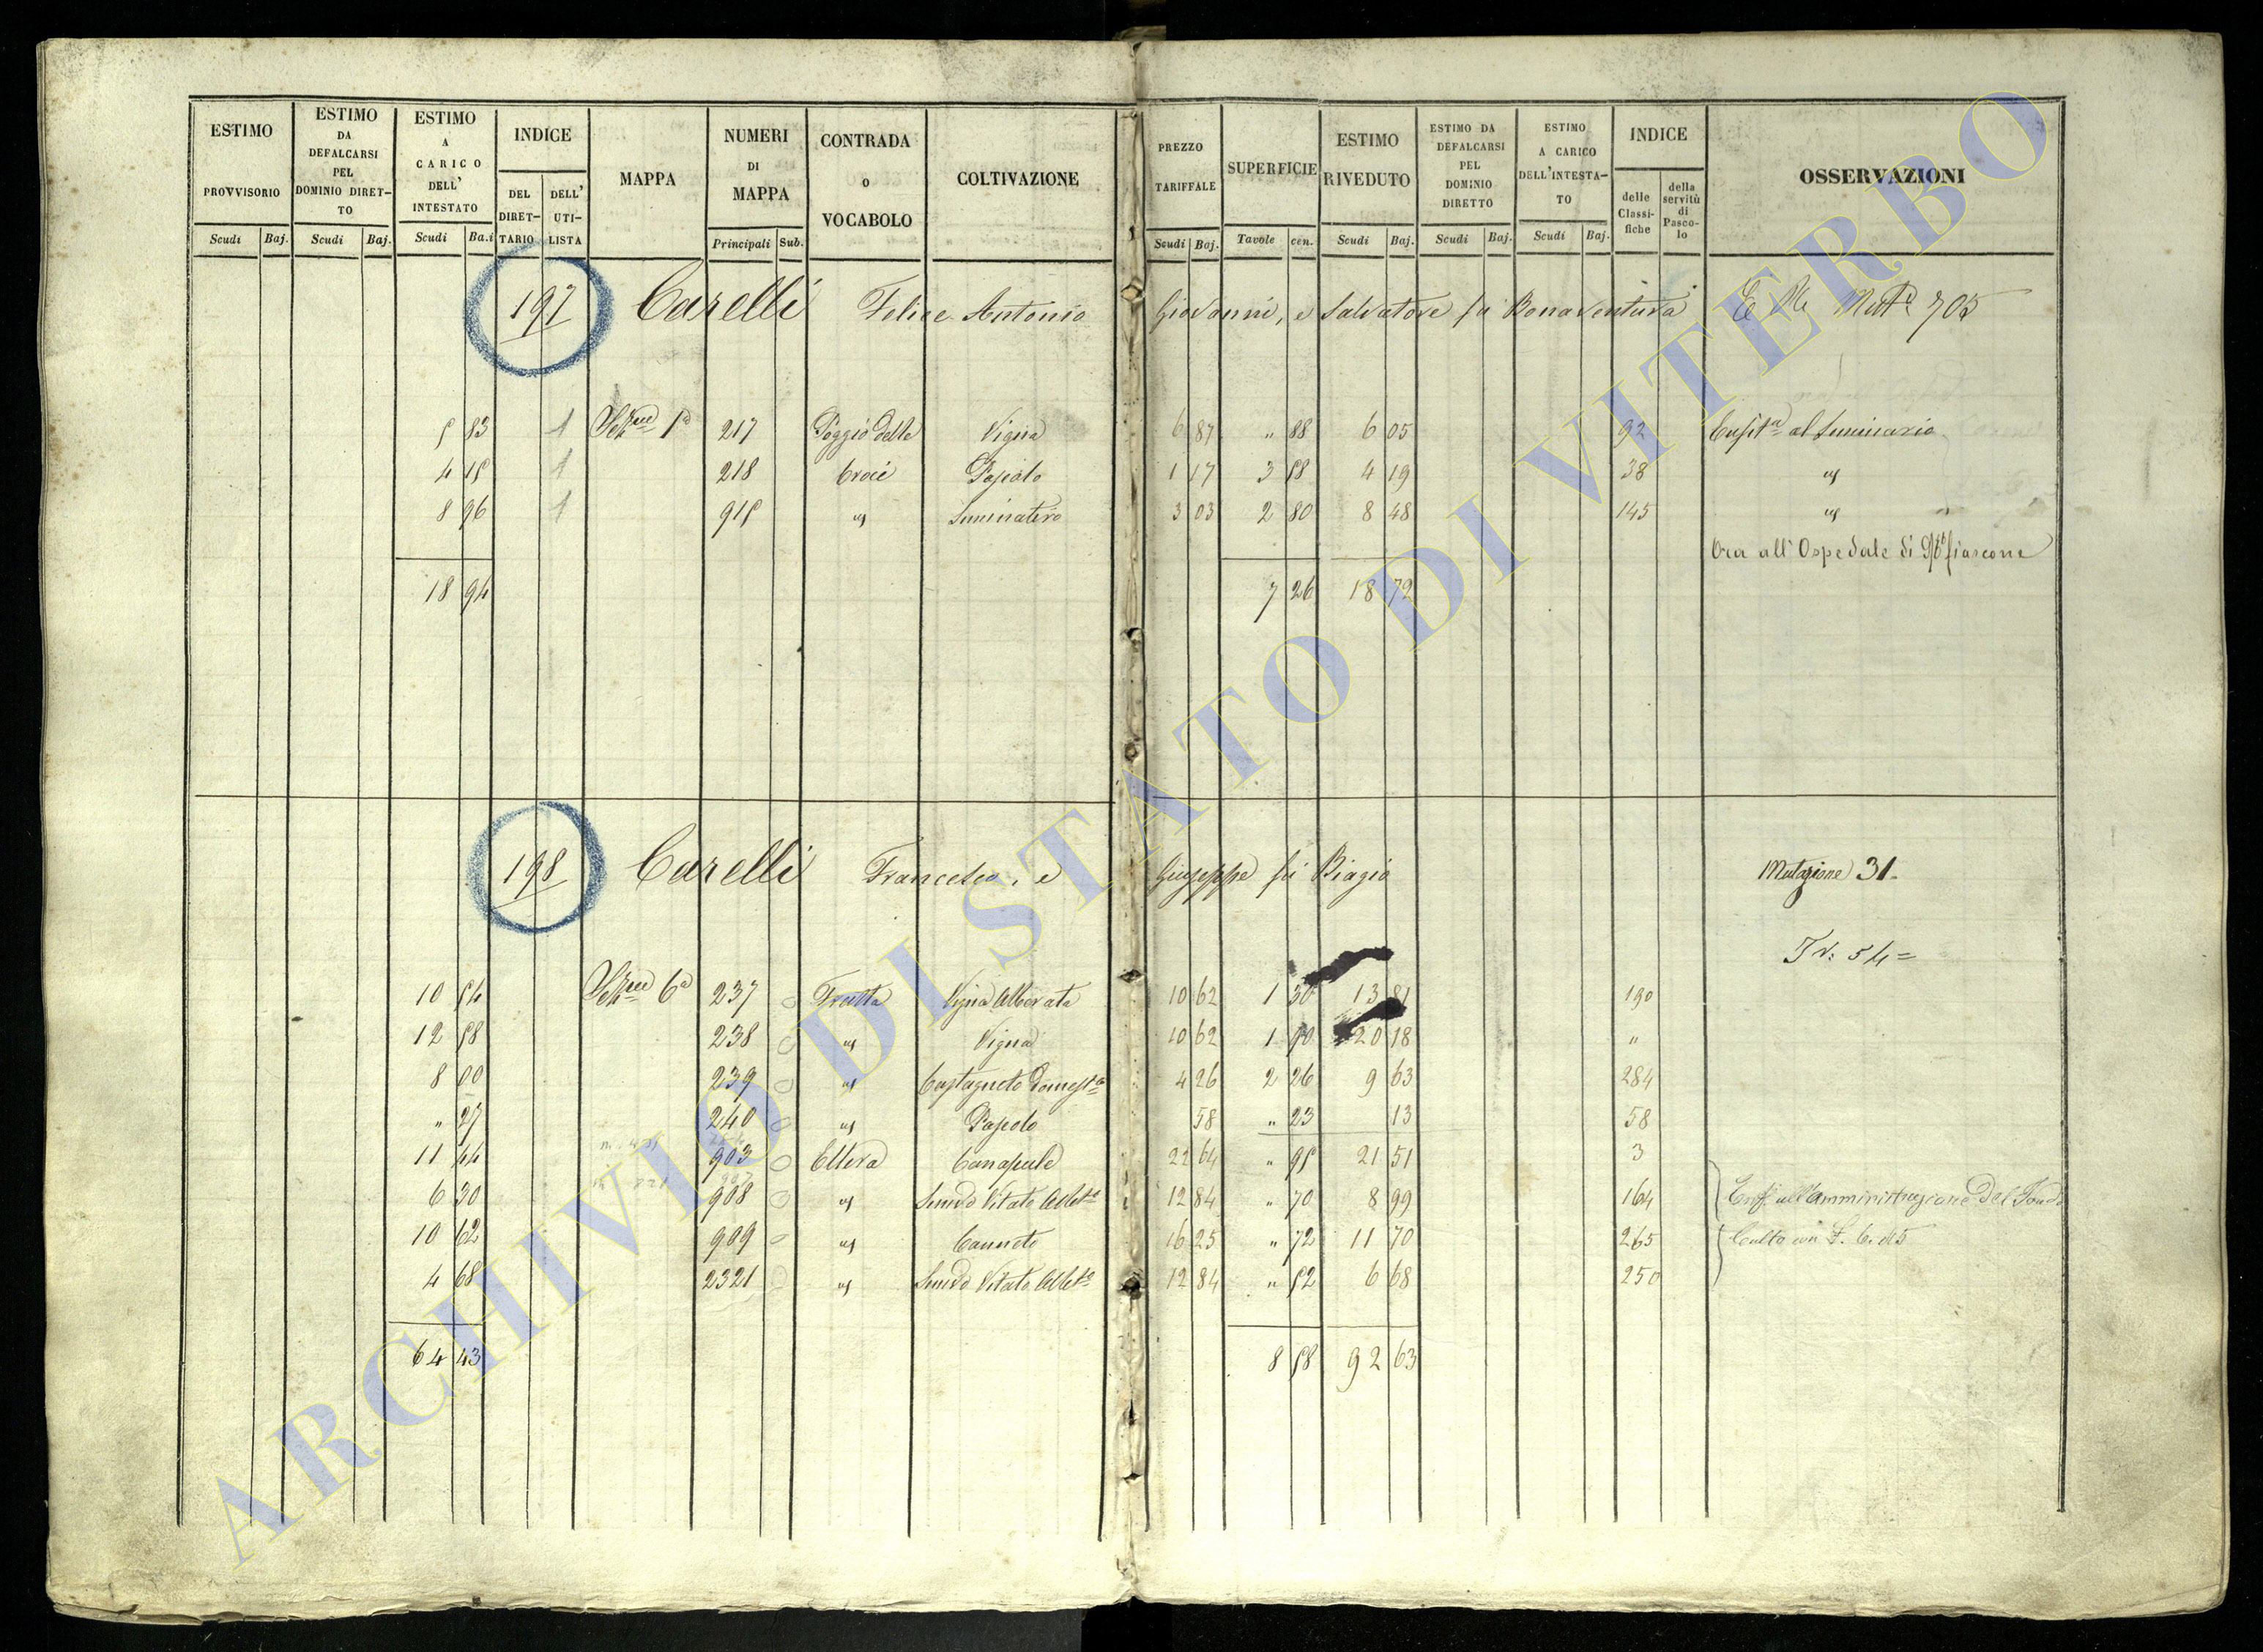 ESTIMO PROVVISORIO Scudi Baj. ESTIMO DA DEFALCARSI PEL DOMINIO DIRET-TO Scudi Baj. ESTIMO A CARICO DELL' INTESTATO Scudi Ba.i INDICE DEL DIRET-TARIO DELL' UTI-LISTA MAPPA NUMERI DI MAPPA Principali Sub. CONTRADA O VOCABOLO COLTIVAZIONE PREZZO TARIFFALE Scudi Baj. SUPERFICIE Tavole cen. ESTIMO RIVEDUTO Scudi Baj. ESTIMO DA DEFALCARSI PEL DOMINIO DIRETTO Scudi Baj. ESTIMO A CARICO DELL'INTESTA-TO Scudi Baj. INDICE delle Classi-fiche della servitù di Pasco-lo OSSERVAZIONI
197 Carelli Felice Antonio Giovanni, e Salvatore fù Bonaventura Mut. 705
5 83 1 Sezne 1a 217 Poggio delle Vigna 6 87 " 88 6 05 92 al Seminario
4 15 1 218 Croci Pascolo 1 17 3 58 4 19 38 "
8 96 1 915 " Seminativo 3 03 2 80 8 48 145 "
Ora all' Ospedale di Mtefiascone
18 94 7 26 18 72
198 Carelli Francesco, e Giuseppe fù Biagio Mutazione 31
54 =
10 54 Sezne 6a 237 Fratta Vigna Alberata 10 62 1 30 13 81 190
12 58 238 " Vigna 10 62 1 90 20 18 "
8 00 239 " Castagneto domesto 4 26 2 26 9 63 284
" 27 240 " Pascolo 58 " 23 13 58
11 44 903 Ellera Canapule 22 64 " 95 21 51 3
6 30 908 " Semvo Vitato Albto 12 84 " 70 8 99 164 Enf. all'Amministrazione Del Fondo
10 62 909 " Canneto 16 25 " 72 11 70 265 Culto con
4 68 2321 " Semvo Vitato Albto 12 84 " 52 6 68 250
64 43 8 58 92 63
ARCHIVIO DI STATO DI VITERBO